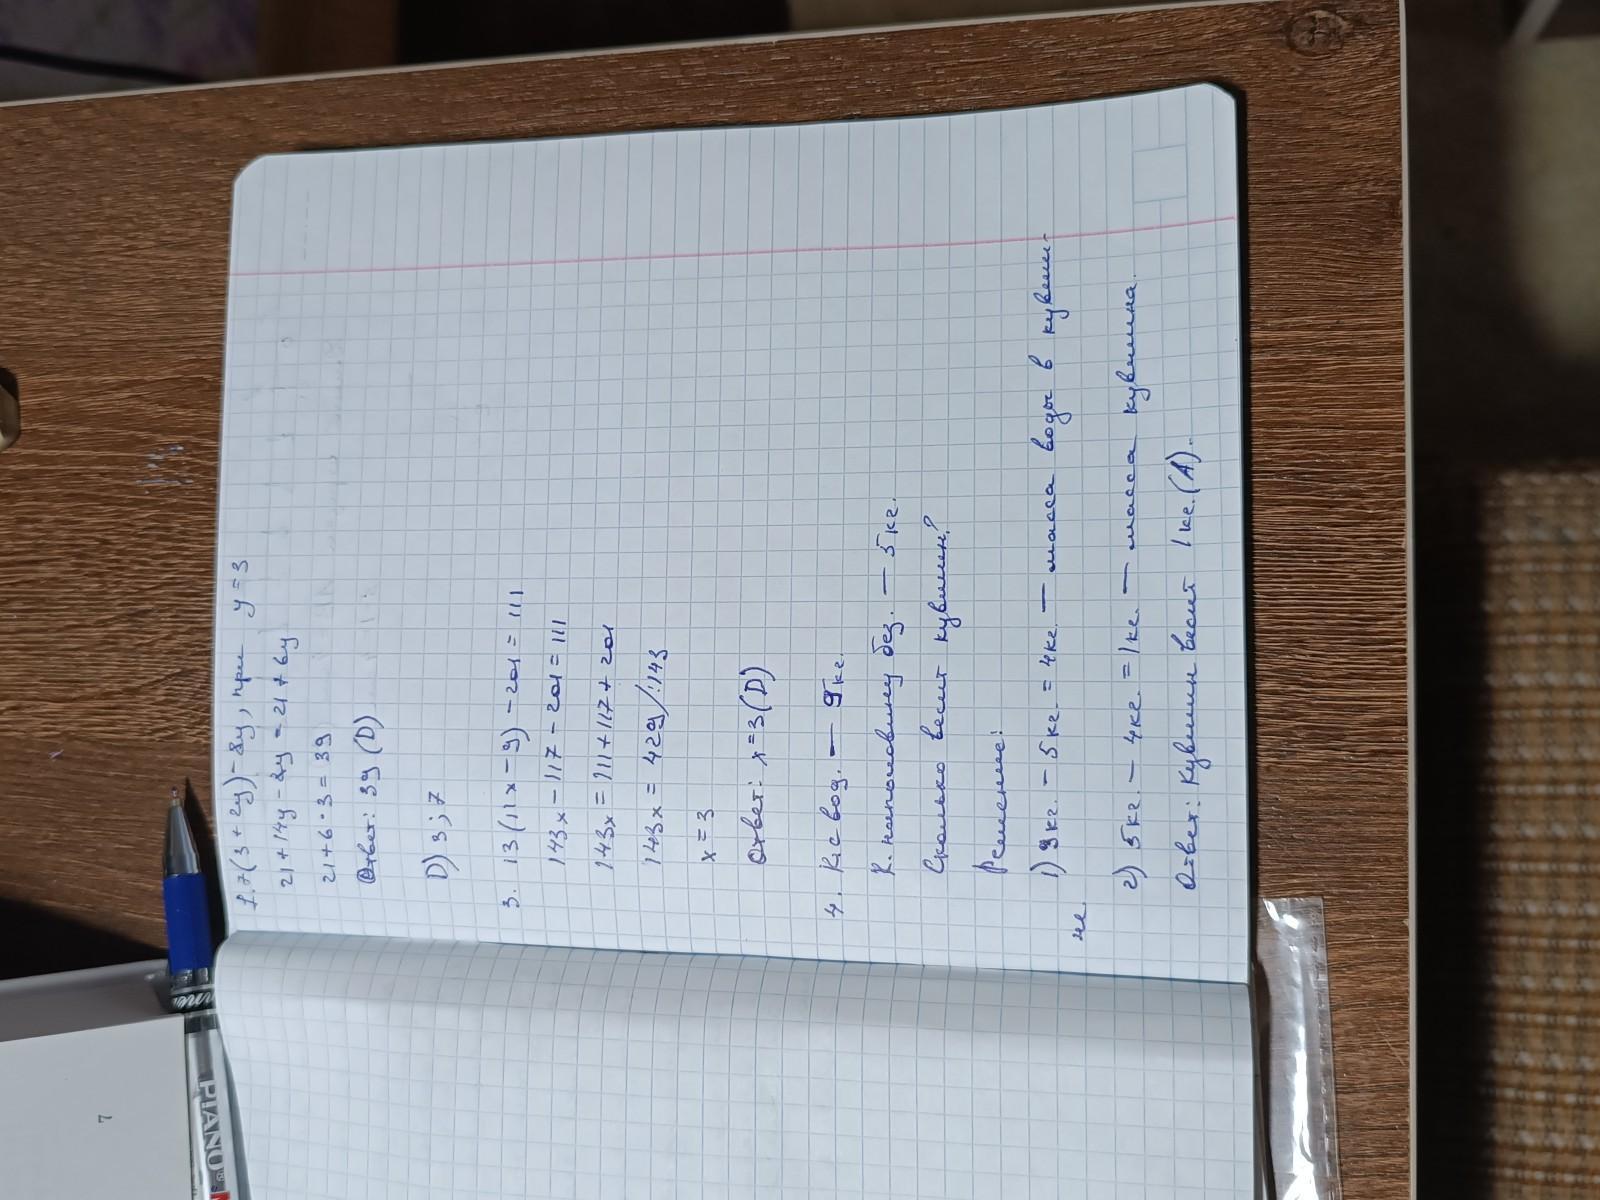 1. 7(3+2y)-8y, при y=3
21+14y-8y=21+6y
21+6·3=39
Ответ: 39 (D)
D) 3; 7
3. 13(11x-9)-201=111
143x-117-201=111
143x=111+117+201
143x=429/:143
x=3
Ответ: x=3(D)
4. К. с вод. — 9кг.
К. наполовину без. — 5кг.
Сколько весит кувшин?
Решение:
1) 9кг. - 5кг. = 4кг. — масса воды в кувши-
не.
2) 5кг. - 4кг. = 1кг. — масса кувшина.
Ответ: Кувшин весит 1кг.(А).
7
PIANO